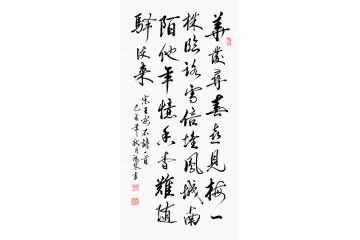 華髮尋春喜見梅一
株臨路雪倍堆鳳城南
陌他年憶香杳難隨
驛使來
宋王安石詩一首
己亥年秋月 書